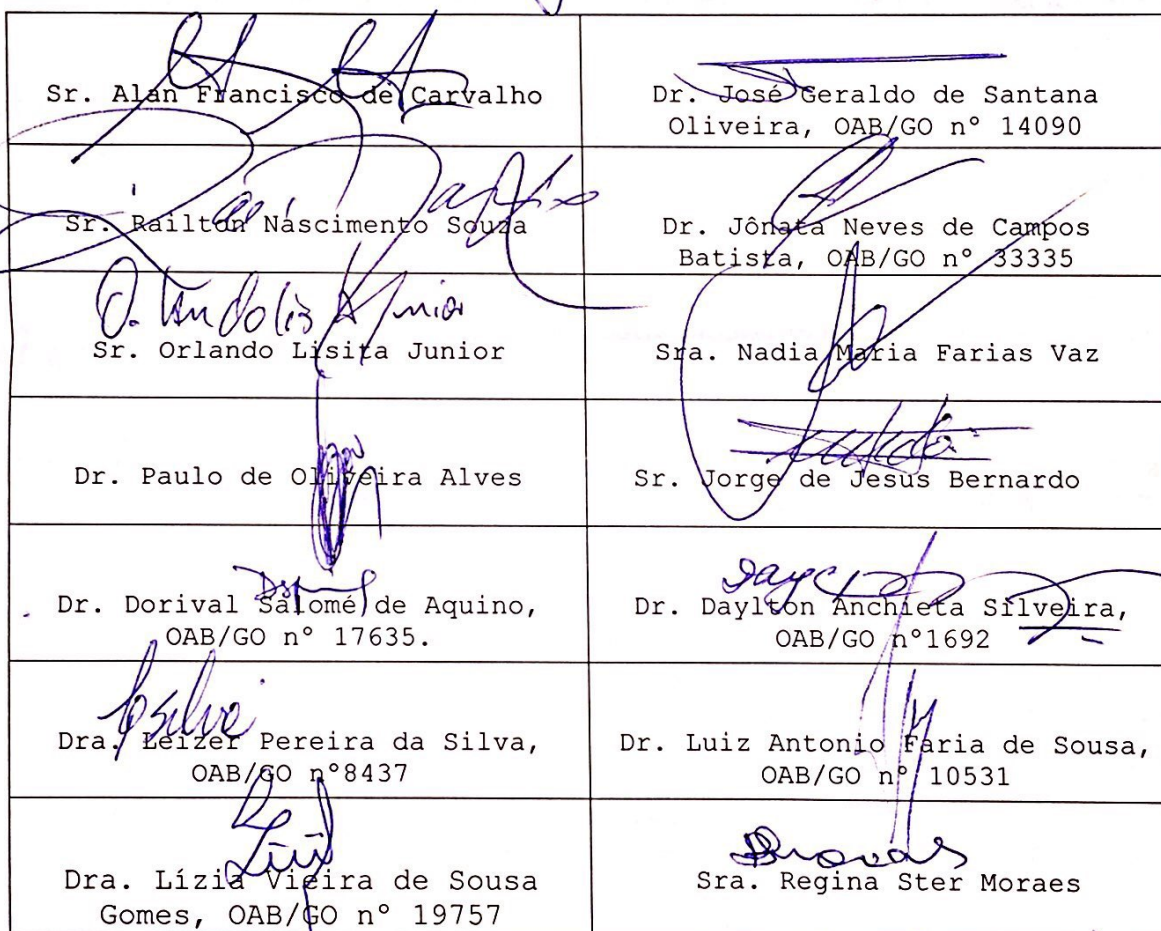 Sr. Alan Francisco de Carvalho
Dr. José Geraldo de Santana
Oliveira, OAB/GO nº 14090
Sr. Railton Nascimento Souza
Dr. Jônata Neves de Campos
Batista, OAB/GO nº 33335
Sr. Orlando Lisita Junior
Sra. Nadia Maria Farias Vaz
Dr. Paulo de Oliveira Alves
Sr. Jorge de Jesus Bernardo
Dr. Dorival Salomé de Aquino,
OAB/GO nº 17635.
Dr. Daylton Anchieta Silveira,
OAB/GO nº1692
Dra. Leizer Pereira da Silva,
OAB/GO nº8437
Dr. Luiz Antonio Faria de Sousa,
OAB/GO nº 10531
Dra. Lízia Vieira de Sousa
Gomes, OAB/GO nº 19757
Sra. Regina Ster Moraes